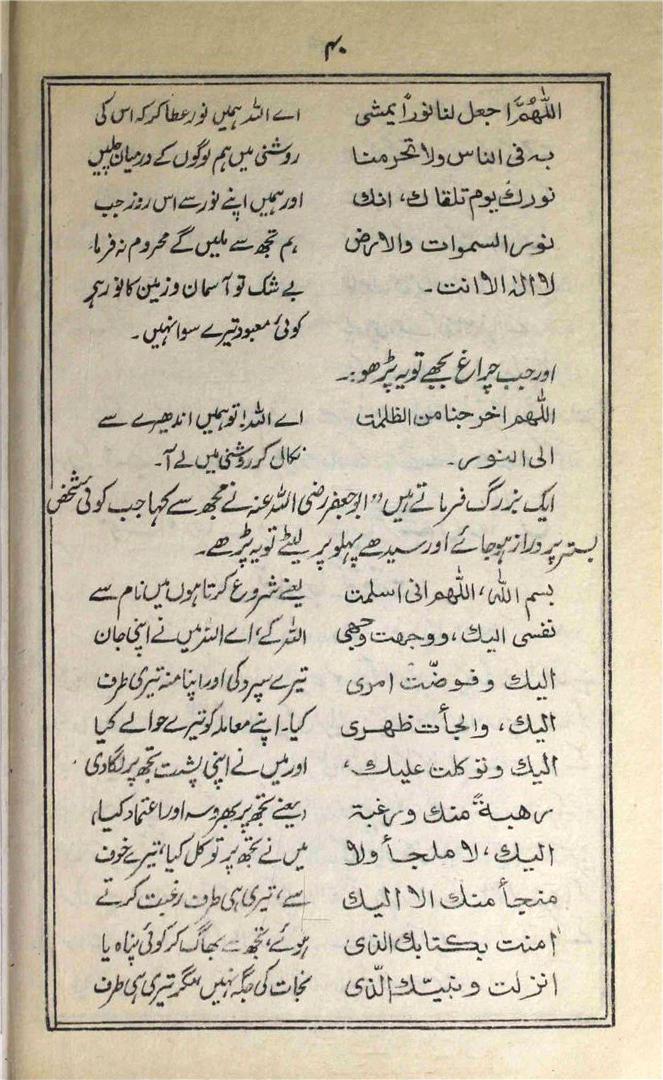 ۴۰
اللّٰهُمَّ اجعل لنا نوراً یمشی
به فی الناس ولا تحرمنا
نورك یوم تلقاك، انك
نور السموات والارض
لا الٰه الا انت۔
اے اللہ ہمیں نور عطا کر کہ اس کی
روشنی میں ہم لوگوں کے درمیان چلیں
اور ہمیں اپنے نور سے اس روز جب
ہم تجھ سے ملیں گے محروم نہ فرما،
بے شک تو آسمان و زمین کا نور ہے
کوئی معبود تیرے سوا نہیں۔
اور جب چراغ بجھے تو یہ پڑھو:۔
اللّٰهم اخرجنا من الظلمٰت
الی النور۔
اے اللہ! تو ہمیں اندھیرے سے
نکال کر روشنی میں لے آ۔
ایک بزرگ فرماتے ہیں "ابو جعفر رضی اللہ عنہ نے مجھ سے کہا جب کوئی شخص
بستر پر دراز ہو جائے اور سیدھے پہلو پر لیٹے تو یہ پڑھے۔
بسم اللّٰه، اللّٰهم انی اسلمت
نفسی الیك، ووجهت وجهی
الیك وفوضّت امری
الیك، والجأت ظهری
الیك وتوکلت علیك،
رهبةً منك ورغبة
الیك، لا ملجأ ولا
منجأ منك الا الیك
اٰمنت بکتابك الذی
انزلت ونبیّك الّذی
یعنے شروع کرتا ہوں میں نام سے
اللہ کے، اے اللہ میں نے اپنی جان
تیرے سپرد کی اور اپنا منہ تیری طرف
کیا۔ اپنے معاملہ کو تیرے حوالے کیا
اور میں نے اپنی پشت تجھ پر لگادی
(یعنے تجھ پر بھروسہ اور اعتماد کیا)
میں نے تجھ پر توکل کیا، تیرے خوف
سے، تیری ہی طرف رغبت کرتے
ہوئے، تجھ سے بھاگ کر کوئی پناہ یا
نجات کی جگہ نہیں مگر تیری ہی طرف